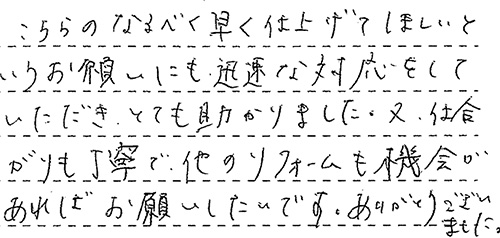 こちらのなるべく早く仕上げてほしいと
いうお願いにも迅速な対応をして
いただき、とても助かりました。又、仕合
がりも丁寧で、他のリフォームも機会が
あればお願いしたいです。ありがとうござい
ました。